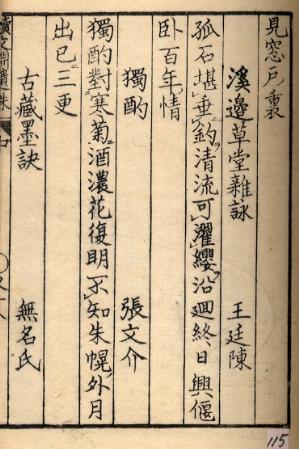 見窓戸裏
溪邊草堂雜詠　王廷陳
孤石堪垂釣清流可濯纓沿迴終日興偃
卧百年情
獨酌　張文介
獨酌對寒菊酒濃花復明不知朱幌外月
出已三更
古藏墨訣　無名氏
115